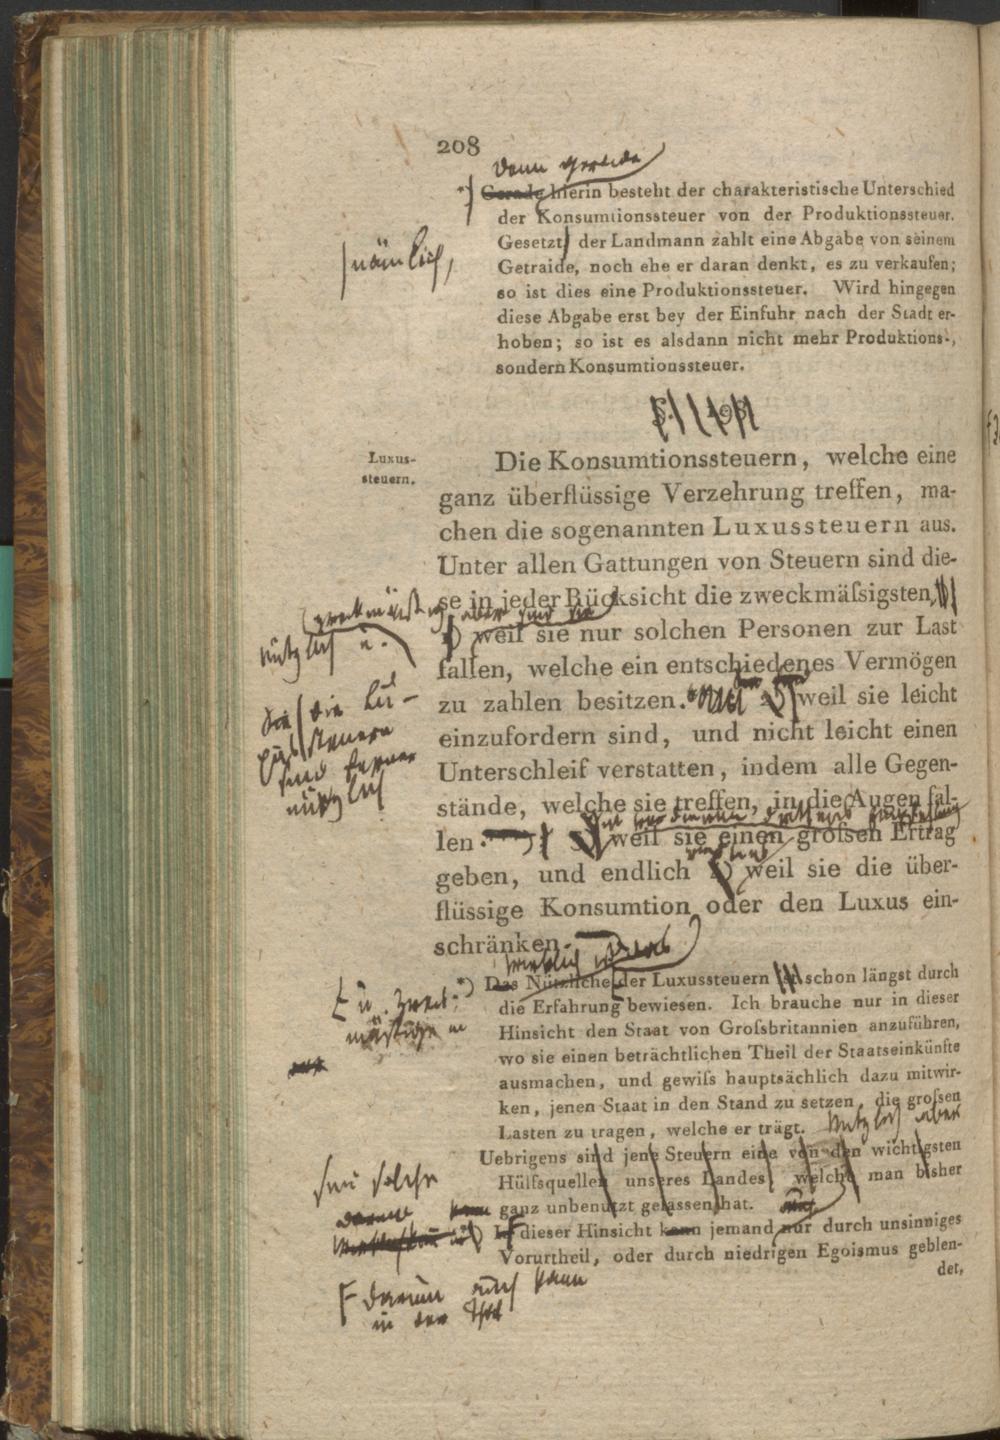 208
denn gerade
*) Gerade hierin besteht der charakteristische Unterschied
der Konsumtionssteuer von der Produktionssteuer.
Gesetzt der Landmann zahlt eine Abgabe von seinem
nämlich,
Getraide, noch ehe er daran denkt, es zu verkaufen;
so ist dies eine Produktionssteuer. Wird hingegen
diese Abgabe erst bey der Einfuhr nach der Stadt er-
hoben; so ist es alsdann nicht mehr Produktions-,
sondern Konsumtionssteuer.
Luxus-
steuern.
Die Konsumtionssteuern, welche eine
ganz überflüssige Verzehrung treffen, ma-
chen die sogenannten Luxussteuern aus.
Unter allen Gattungen von Steuern sind die-
se in jeder Rücksicht die zweckmäſsigsten,
zweckmäßig aber sind sie
nützlich u.
weil sie nur solchen Personen zur Last
fallen, welche ein entschiedenes Vermögen
zu zahlen besitzen. 2) weil sie leicht
die Lu-
xussteuern
sind ferner
nützlich
einzufordern sind, und nicht leicht einen
Unterschleif verstatten, indem alle Gegen-
stände, welche sie treffen, in die Augen fal-
len. weil sie einen groſsen Ertrag
geben, und endlich weil sie die über-
flüssige Konsumtion oder den Luxus ein-
schränken.
*) Das Nützliche der Luxussteuern ist schon längst durch
u. Zweck-
mäßige
die Erfahrung bewiesen. Ich brauche nur in dieser
Hinsicht den Staat von Groſsbritannien anzuführen,
wo sie einen beträchtlichen Theil der Staatseinkünfte
ausmachen, und gewiſs hauptsächlich dazu mitwir-
ken, jenen Staat in den Stand zu setzen, die groſsen
Lasten zu tragen, welche er trägt.
Nützlich aber
Uebrigens sind jene Steuern eine von den wichtigsten
Hülfsquellen unseres Landes, welche man bisher
sind solche
ganz unbenutzt gelassen hat.
In dieser Hinsicht kann jemand nur durch unsinniges
Vorurtheil, oder durch niedrigen Egoismus geblen-
det,
darum auch kann
in der That